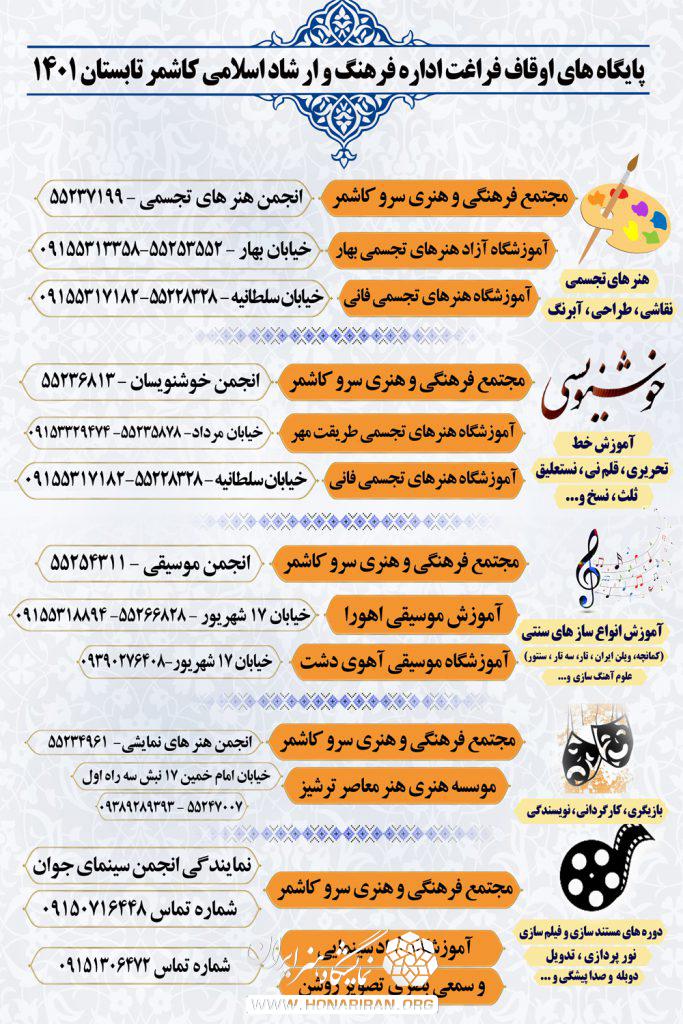 پایگاه های اوقاف فراغت اداره فرهنگ و ار شاد اسلامی کاشمر تابستان ۱۴۰۱
مجتمع فرهنگی و هنری سرو کاشمر
انجمن هنر های تجسمی - ۵۵۲۳۷۱۹۹
آموزشگاه آزاد هنرهای تجسمی بهار
خیابان بهار - ۵۵۲۵۳۵۵۲-۰۹۱۵۵۳۱۳۳۵۸
آموزشگاه هنرهای تجسمی فانی
خیابان سلطانیه - ۵۵۲۲۸۳۲۸-۰۹۱۵۵۳۱۷۱۸۲
هنر های تجسمی
نقاشی ، طراحی ، آبرنگ
خوشنویسی
مجتمع فرهنگی و هنری سرو کاشمر
انجمن خوشنویسان - ۵۵۲۳۶۸۱۳
آموزشگاه هنرهای تجسمی طریقت مهر
خیابان مرداد- ۵۵۲۳۵۸۷۸- ۰۹۱۵۳۳۲۹۴۷۴
آموزشگاه هنرهای تجسمی فانی
خیابان سلطانیه - ۵۵۲۲۸۳۲۸-۰۹۱۵۵۳۱۷۱۸۲
آموزش خط
تحریری ، قلم نی ، نستعلیق
ثلث ، نسخ و...
مجتمع فرهنگی و هنری سرو کاشمر
انجمن موسیقی - ۵۵۲۵۴۳۱۱
آموزش موسیقی اهورا
خیابان ۱۷ شهریور - ۵۵۲۶۶۸۲۸- ۰۹۱۵۵۳۱۸۸۹۴
آموزشگاه موسیقی آهوی دشت
خیابان ۱۷ شهریور-۰۹۳۹۰۲۷۶۴۰۸
آموزش انواع ساز های سنتی
(کمانچه، ویلن ایران ، تار، سه تار ، سنتور)
علوم آهنگ سازی و...
مجتمع فرهنگی و هنری سرو کاشمر
انجمن هنر های نمایشی- ۵۵۲۳۴۹۶۱
موسسه هنری هنر معاصر ترشیز
خیابان امام خمین ۱۷ نبش سه راه اول
۵۵۲۴۷۰۰۷ - ۰۹۳۸۹۲۸۹۳۹۳
بازیگری ، کارگردانی ، نویسندگی
مجتمع فرهنگی و هنری سرو کاشمر
نمایندگی انجمن سینمای جوان
شماره تماس ۰۹۱۵۰۷۱۶۴۴۸
شماره تماس ۰۹۱۵۱۳۰۶۴۷۲
و سمعی بصری تصویر روشن
دوره های مستند سازی و فیلم سازی
نور پردازی ، تدویل
دوبله و صدا پیشگی و ...
نمایشگاه هنر ایران
WWW.HONARIRAN.ORG